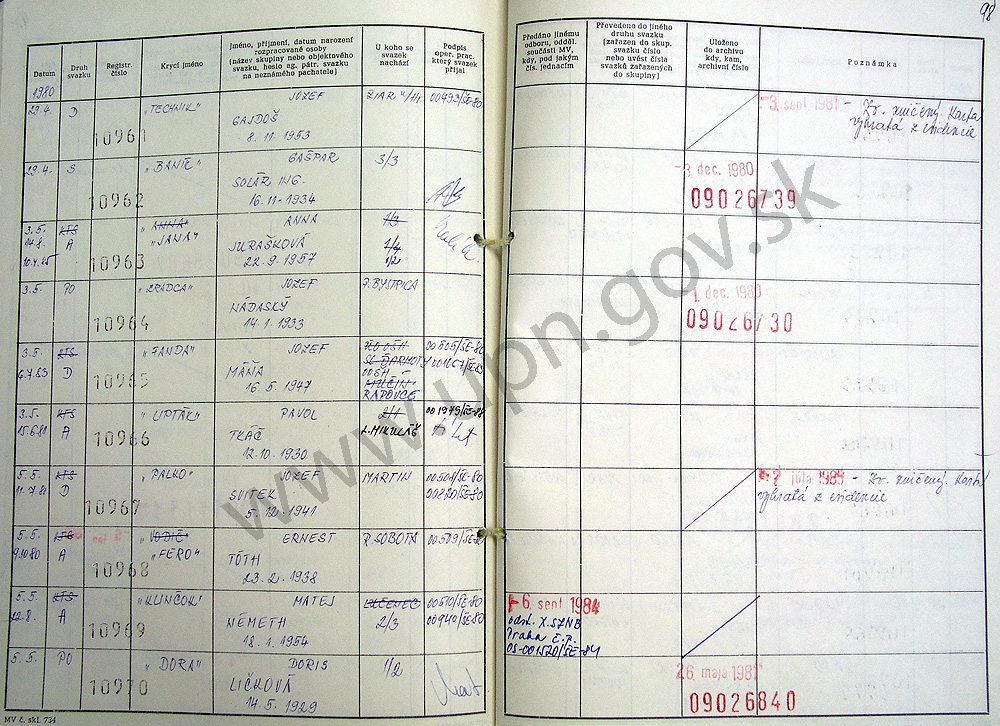 98
Datum
Druh svazku
Registr. číslo
Krycí jméno
Jméno, příjmení, datum narození rozpracované osoby (název skupiny nebo objektového svazku, heslo ag. pátr. svazku na neznámého pachatele)
U koho se svazek nachází
Podpis oper. prac. který svazek přijal
Předáno jinému odboru, odděl. součásti MV, kdy, pod jakým čís. jednacím
Převedeno do jiného druhu svazku (zařazen do skup. svazku číslo nebo uvést čísla svazků zařazených do skupiny)
Uloženo do archivu kdy, kam, archivní číslo
Poznámka
1980
29.4. D 10961 "TECHNIK" JOZEF
GAJDOŠ
8.11.1953
00493/ŠE-80
3. sent 1981 - Zv. zničený. Karta
vybratá z evidencie
29.4. S 10962 "BANÍK" GAŠPAR 3/3
SOLÁR ING.
16.11.1934
3. dec. 1980
09026739
3.5. KTS "ANNA" ANNA 1/3
14.8. A 10963 "JANA" JURAŠKOVÁ 1/4
10.4.85 22.9.1957 1/2
3.5. PO 10964 "ZRADCA" JOZEF P. BYSTRICA
NÁDASKÝ
14.1.1933
1. dec. 1980
09026730
3.5. KTS 10965 "FANDA" JOZEF 00505/ŠE-80
6.7.83 D MÁŇA
16.5.1947
RAPOVCE
3.5. KTS 10966 "LIPTÁK" PAVOL 2/1 001979/ŠE-88
15.6.81 A TKÁČ L. MIKULÁŠ
12.10.1930
5.5. KTS 10967 "PALKO" JOZEF MARTIN
D SVITEK 00820/ŠE-80
5.12.1941
júla 1985 - Zv. zničený. Karta
vybratá z evidencie
5.5. KTS 10968 "VODIČ" ERNEST R. SOBOTA
9.10.80 A "FERO" TÓTH
23.2.1938
5.5. KTS 10969 "KLINČOK" MATEJ LUČENEC 00510/ŠE-80
12.8. A NÉMETH 2/3 00940/ŠE-80
18.1.1954
6. sent 1984
odst. X. SZNB
Praha
OS-001520/ŠE-84
5.5. PO 10970 "DORA" DORIS 1/2
LIČKOVÁ
14.5.1929
26 maja 1981
09026840
MV č. skl. 734
www.upn.gov.sk